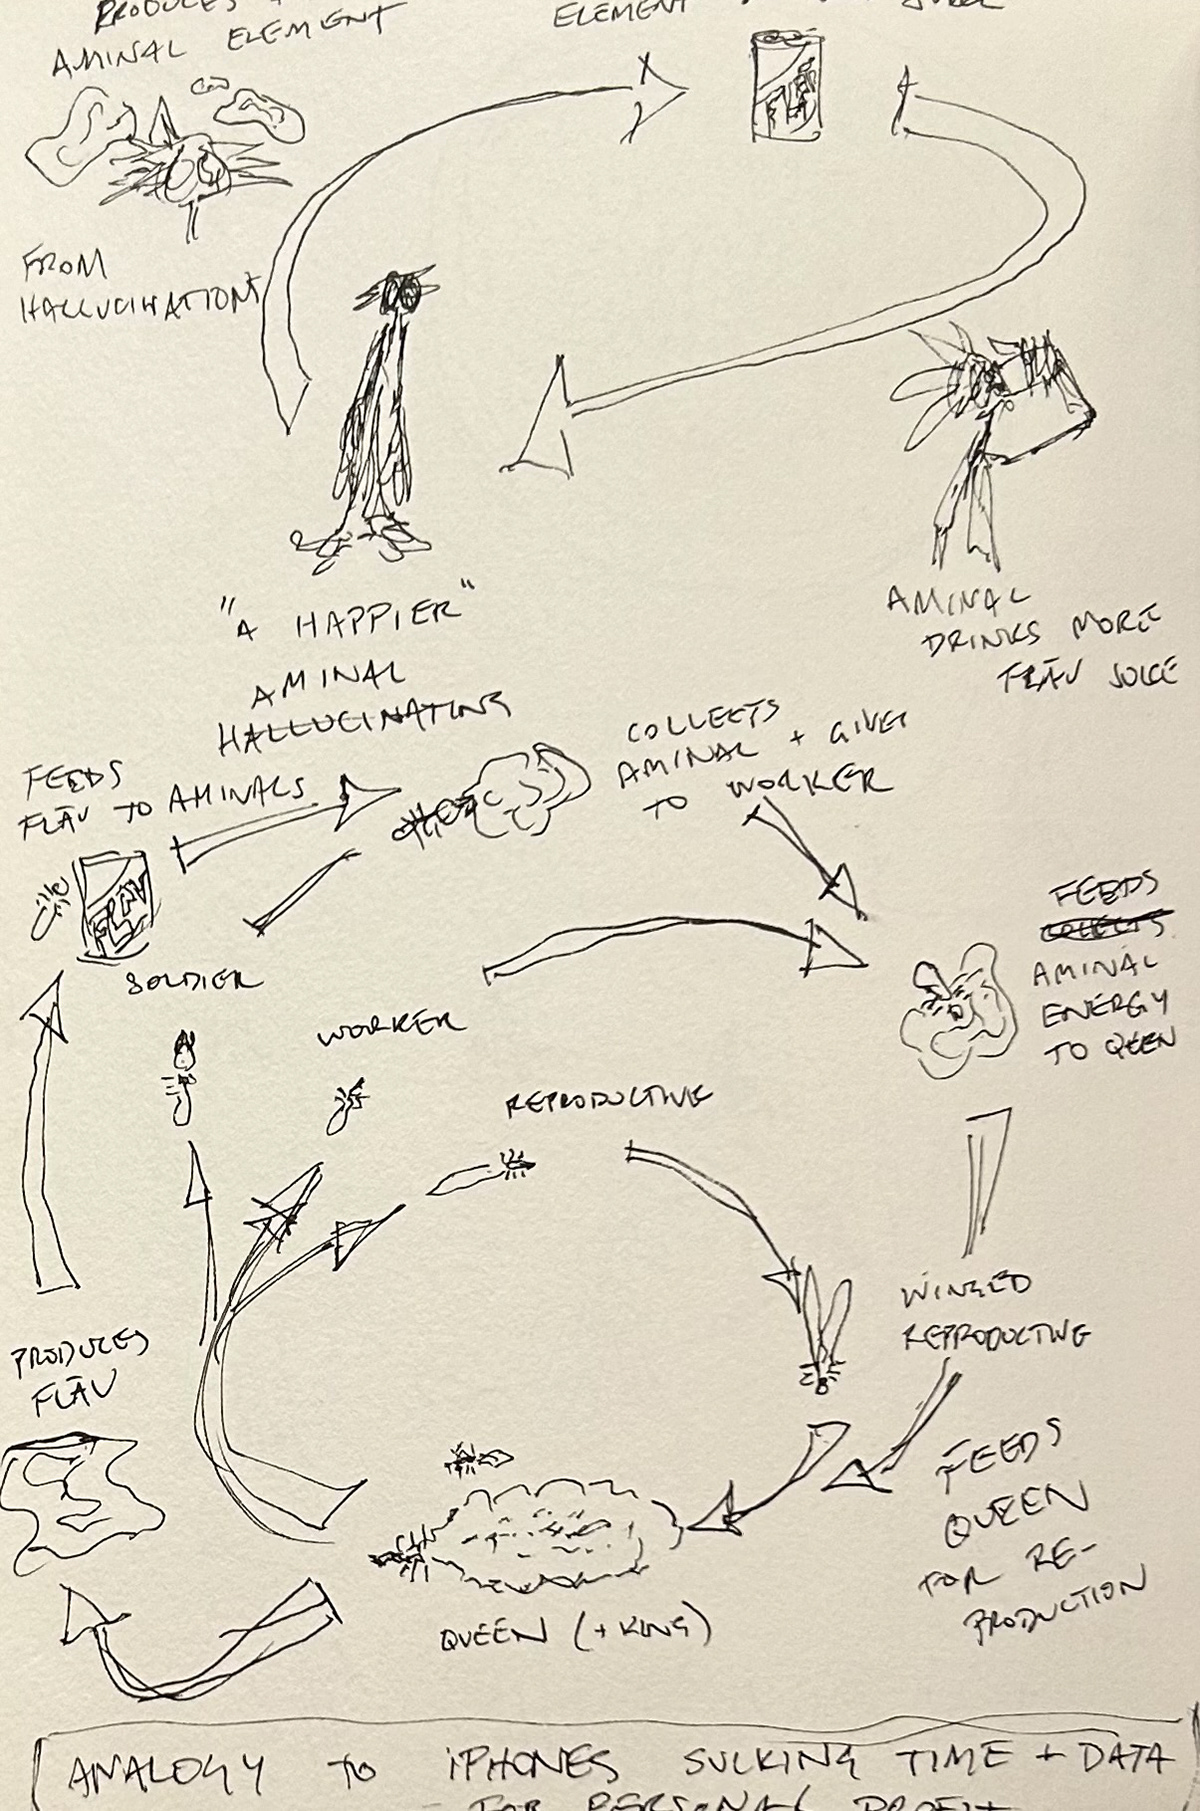 PRODUCES
AMINAL ELEMENT
ELEMENT
FLĀV
FROM
HALLUCINATIONS
"A HAPPIER"
AMINAL
HALLUCINATING
AMINAL
DRINKS MORE
FLĀV JUICE
FEEDS
FLĀV TO AMINALS
COLLECTS
AMINAL + GIVES
TO WORKER
FLĀV
SOLDIER
WORKER
REPRODUCTIVE
FEEDS
COLLECTS
AMINAL
ENERGY
TO QEEN
WINGED
REPRODUCTIVE
PRODUCES
FLĀV
FEEDS
QUEEN
FOR RE-
PRODUCTION
QUEEN (+ KING)
ANALOGY TO iPHONES SUCKING TIME + DATA
FOR PERSONAL PROFIT